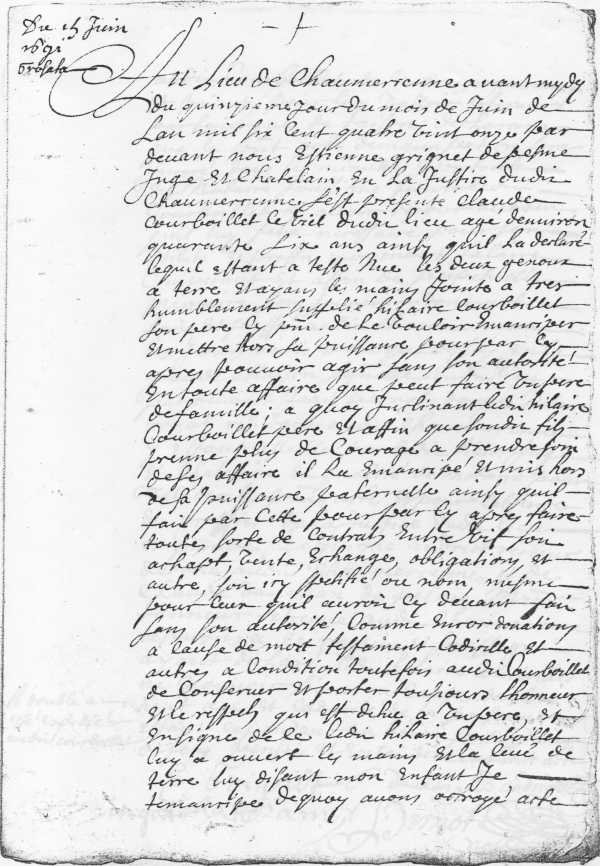 Du 15 Juin
1691
Au Lieu de Chaumercenne avant mydy
du quinzieme jour du mois de Juin de
Lan mil six cent quatre vint onze par
devant nous Estienne grignet de pesme
Juge Et Chatelain En La Justice dudit
Chaumercenne s'est presenté Claude
Courboillet le viel dudit lieu agé denviron
quarante six ans ainsy quil La declaré
lequel estant a teste Nue les deux genoux
a terre Et ayans les mains Jointe a tres
humblement supplié hilaire Courboillet
son pere cy pnt. de le vouloir Emanciper
Et mettre hors sa puissance pour par cy
apres pouvoir agir sans son autorité
En toute affaire que peut faire un pere
de famille; a quoy Inclinant ledit hilaire
Courboillet pere Et affin que sondit fils
prenne plus de Courage a prendre soin
de ses affaire il La Emancipé Et mis hors
de sa puissance paternelle ainsy quil
fait par Cette pour par cy apres faire
toutes sorte de Contrats Entre vif soit
achapt, vente, Echange, obligations Et
autre, soit icy spécifié ou non, mesme
pour Ceux quil auroit Cy devant fait
sans son autorité, Comme Encor donations
a Cause de mort testament Codicille Et
autres a Condition toutefois audit Courboillet
de Conserver Et porter tousjours lhonneur
Et le respect qui est dehu a un pere, Et
En signe de Ce ledit hilaire Courboillet
luy a ouvert les mains Et la levé de
terre luy disant mon Enfant Je
temancipe de quoy avons octroyé acte